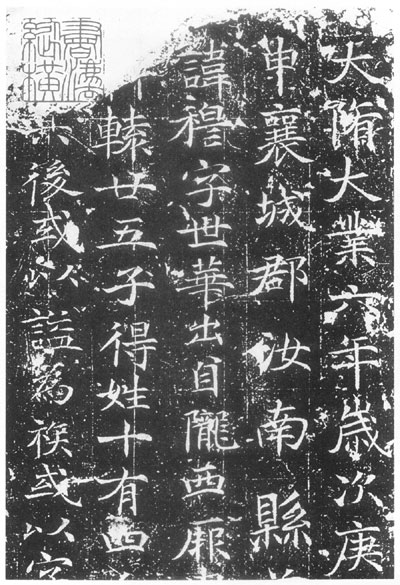 書法
縱橫
大隋大業六年歲次庚
申襄城郡汝南縣
諱穆字世華出自隴西厥
轅廿五子得姓十有四
後或以謚為族或以官